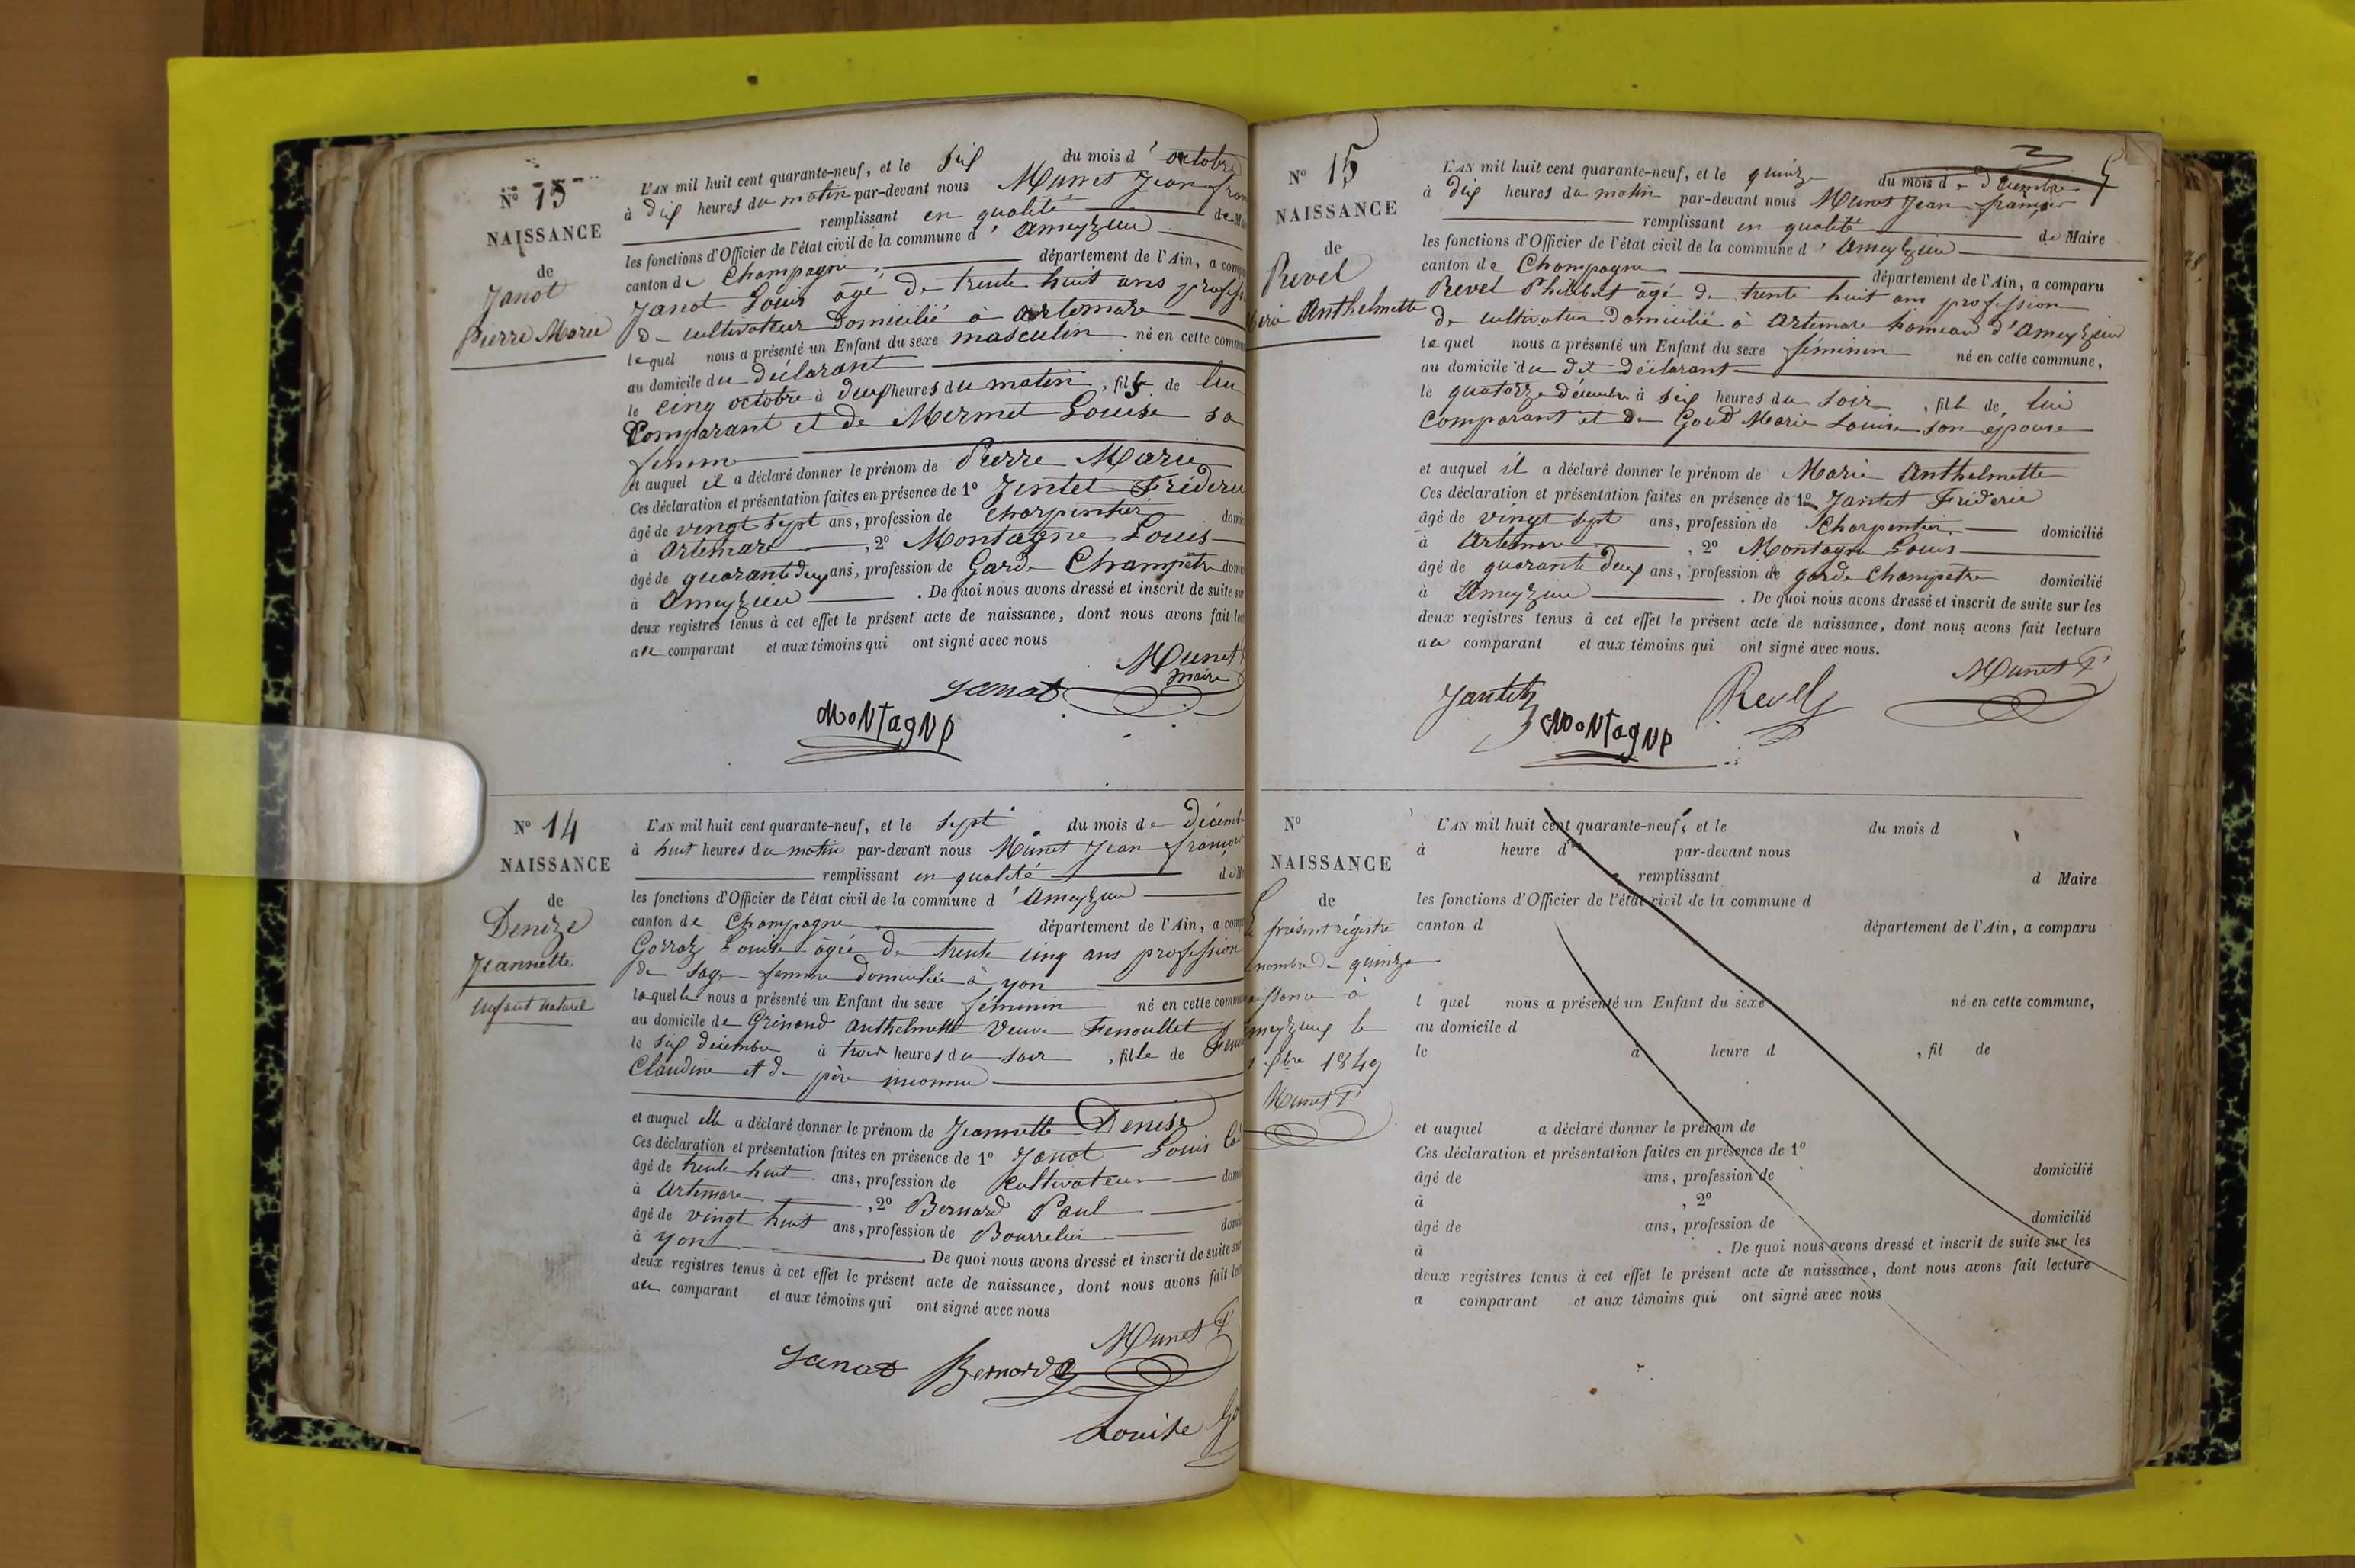 N° 13
NAISSANCE
de
Janot
Pierre Marie
L'AN mil huit cent quarante-neuf, et le six du mois d' octobre
à dix heures du matin par-devant nous Munet Jean
remplissant en qualité
les fonctions d'Officier de l'état civil de la commune d' Ameyzieu
canton de Champagne département de l'Ain, a
Janot Louis âgé de trente huit ans
de cultivateur domicilié à artemare
lequel nous a présenté un Enfant du sexe masculin né en cette
au domicile du déclarant
le cinq octobre à deux heures du matin, fils de lui
Comparant et de Mermet Louise sa
femme
et auquel il a déclaré donner le prénom de Pierre Marie
Ces déclaration et présentation faites en présence de 1°
âgé de vingt sept ans, profession de Charpentier
à Artemare, 2° Montagne Louis
âgé de quarante deux ans, profession de Garde Champêtre
à Ameyzieu. De quoi nous avons dressé et inscrit de suite
deux registres tenus à cet effet le présent acte de naissance, dont nous avons fait
au comparant et aux témoins qui ont signé avec nous
Munet
maire
Janot
MONTAGNE
N° 14
NAISSANCE
de
Denize
Jeannette
enfant naturel
L'AN mil huit cent quarante-neuf, et le sept du mois de
à huit heures du matin par-devant nous Munet Jean
remplissant en qualité
les fonctions d'Officier de l'état civil de la commune d' Ameyzieu
canton de Champagne département de l'Ain, a
Gorraz Louise âgée de trente cinq ans profession
de sage-femme domiciliée à yon
laquelle nous a présenté un Enfant du sexe féminin né en cette
au domicile de Grinand anthelmette Veuve Fenoullet
le six décembre à trois heures du soir, fille de
Claudine et de père inconnu
et auquel elle a déclaré donner le prénom de Jeannette Denise
Ces déclaration et présentation faites en présence de 1° Janot Louis
âgé de trente huit ans, profession de Cultivateur
à Artemare, 2° Bernard Paul
âgé de vingt huit ans, profession de Bourrelier
à yon. De quoi nous avons dressé et inscrit de suite
deux registres tenus à cet effet le présent acte de naissance, dont nous avons fait
au comparant et aux témoins qui ont signé avec nous
Munet
Janot Bernard
Louise
N° 15
NAISSANCE
de
Revel
Anthelmette
L'AN mil huit cent quarante-neuf, et le quinze du mois de décembre
à dix heures du matin par-devant nous Munet Jean françois
remplissant en qualité de Maire
les fonctions d'Officier de l'état civil de la commune d' Ameyzieu
canton de Champagne département de l'Ain, a comparu
Revel Philibert âgé de trente huit ans profession
de cultivateur domicilié à Artemare hameau d'Ameyzieu
lequel nous a présenté un Enfant du sexe féminin né en cette commune,
au domicile du dit déclarant
le quatorze décembre à six heures du soir, fille de lui
Comparant et de Goud Marie Louise son épouse
et auquel il a déclaré donner le prénom de Marie Anthelmette
Ces déclaration et présentation faites en présence de 1° Jantet Fréderic
âgé de vingt sept ans, profession de Charpentier domicilié
à Artemare, 2° Montagne Louis
âgé de quarante deux ans, profession de garde Champetre domicilié
à Ameyzieu. De quoi nous avons dressé et inscrit de suite sur les
deux registres tenus à cet effet le présent acte de naissance, dont nous avons fait lecture
au comparant et aux témoins qui ont signé avec nous.
Munet
Jantet Revel
MONTAGNE
N°
NAISSANCE
de
présent régistre
nombre de quinze
à
le
1849
Munet
L'AN mil huit cent quarante-neuf, et le du mois d
à heure d par-devant nous
remplissant d Maire
les fonctions d'Officier de l'état civil de la commune d
canton d département de l'Ain, a comparu
l quel nous a présenté un Enfant du sexe né en cette commune,
au domicile d
le à heure d , fil de
et auquel a déclaré donner le prénom de
Ces déclaration et présentation faites en présence de 1°
âgé de ans, profession de domicilié
à , 2°
âgé de ans, profession de domicilié
à . De quoi nous avons dressé et inscrit de suite sur les
deux registres tenus à cet effet le présent acte de naissance, dont nous avons fait lecture
a comparant et aux témoins qui ont signé avec nous